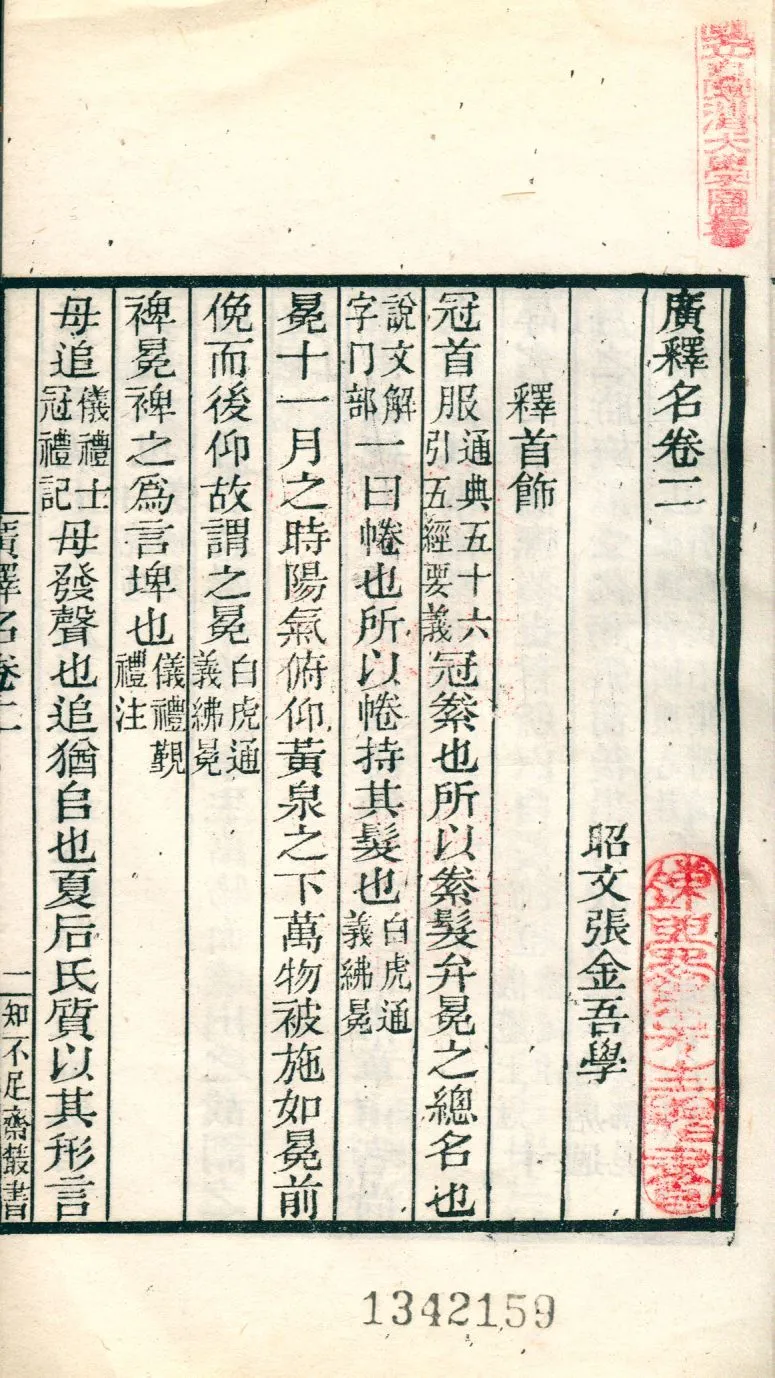 廣釋名卷二
昭文張金吾學
釋首飾
冠首服通典五十六引五經要義冠鮝也所以鮝髮弁冕之總名也
說文解字冂部一曰帣也所以帣持其髮也白虎通義紼冕
冕十一月之時陽氣俯仰黃泉之下萬物被施如冕前
俛而後仰故謂之冕白虎通義紼冕
裨冕裨之爲言埤也儀禮覲禮注
毋追儀禮士冠禮記毋發聲也追猶𠂤也夏后氏質以其形言
廣釋名卷二
二
知不足齋叢書
1342159